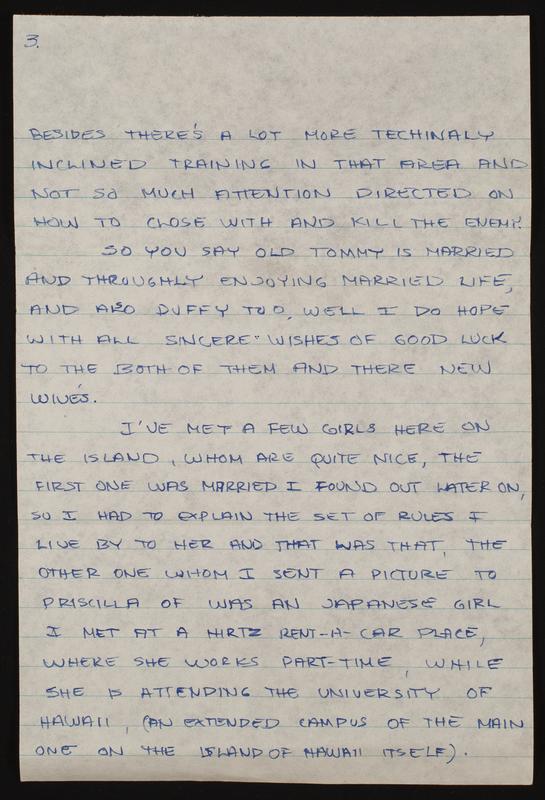 3.
BESIDES THERE'S A LOT MORE TECHINALY
INCLINED TRAINING IN THAT AREA AND
NOT SO MUCH ATTENTION DIRECTED ON
HOW TO CLOSE WITH AND KILL THE ENEMY.
SO YOU SAY OLD TOMMY IS MARRIED
AND THROUGHLY ENJOYING MARRIED LIFE,
AND ALSO DUFFY TOO, WELL I DO HOPE
WITH ALL SINCERE WISHES OF GOOD LUCK
TO THE BOTH OF THEM AND THERE NEW
WIVE'S.
I'VE MET A FEW GIRLS HERE ON
THE ISLAND, WHOM ARE QUITE NICE, THE
FIRST ONE WAS MARRIED I FOUND OUT LATER ON,
SO I HAD TO EXPLAIN THE SET OF RULES I
LIVE BY TO HER AND THAT WAS THAT, THE
OTHER ONE WHOM I SENT A PICTURE TO
PRISCILLA OF WAS AN JAPANESE GIRL
I MET AT A HIRTZ RENT-A-CAR PLACE,
WHERE SHE WORKS PART-TIME, WHILE
SHE IS ATTENDING THE UNIVERSITY OF
HAWAII, (AN EXTENDED CAMPUS OF THE MAIN
ONE ON THE ISLAND OF HAWAII ITSELF).